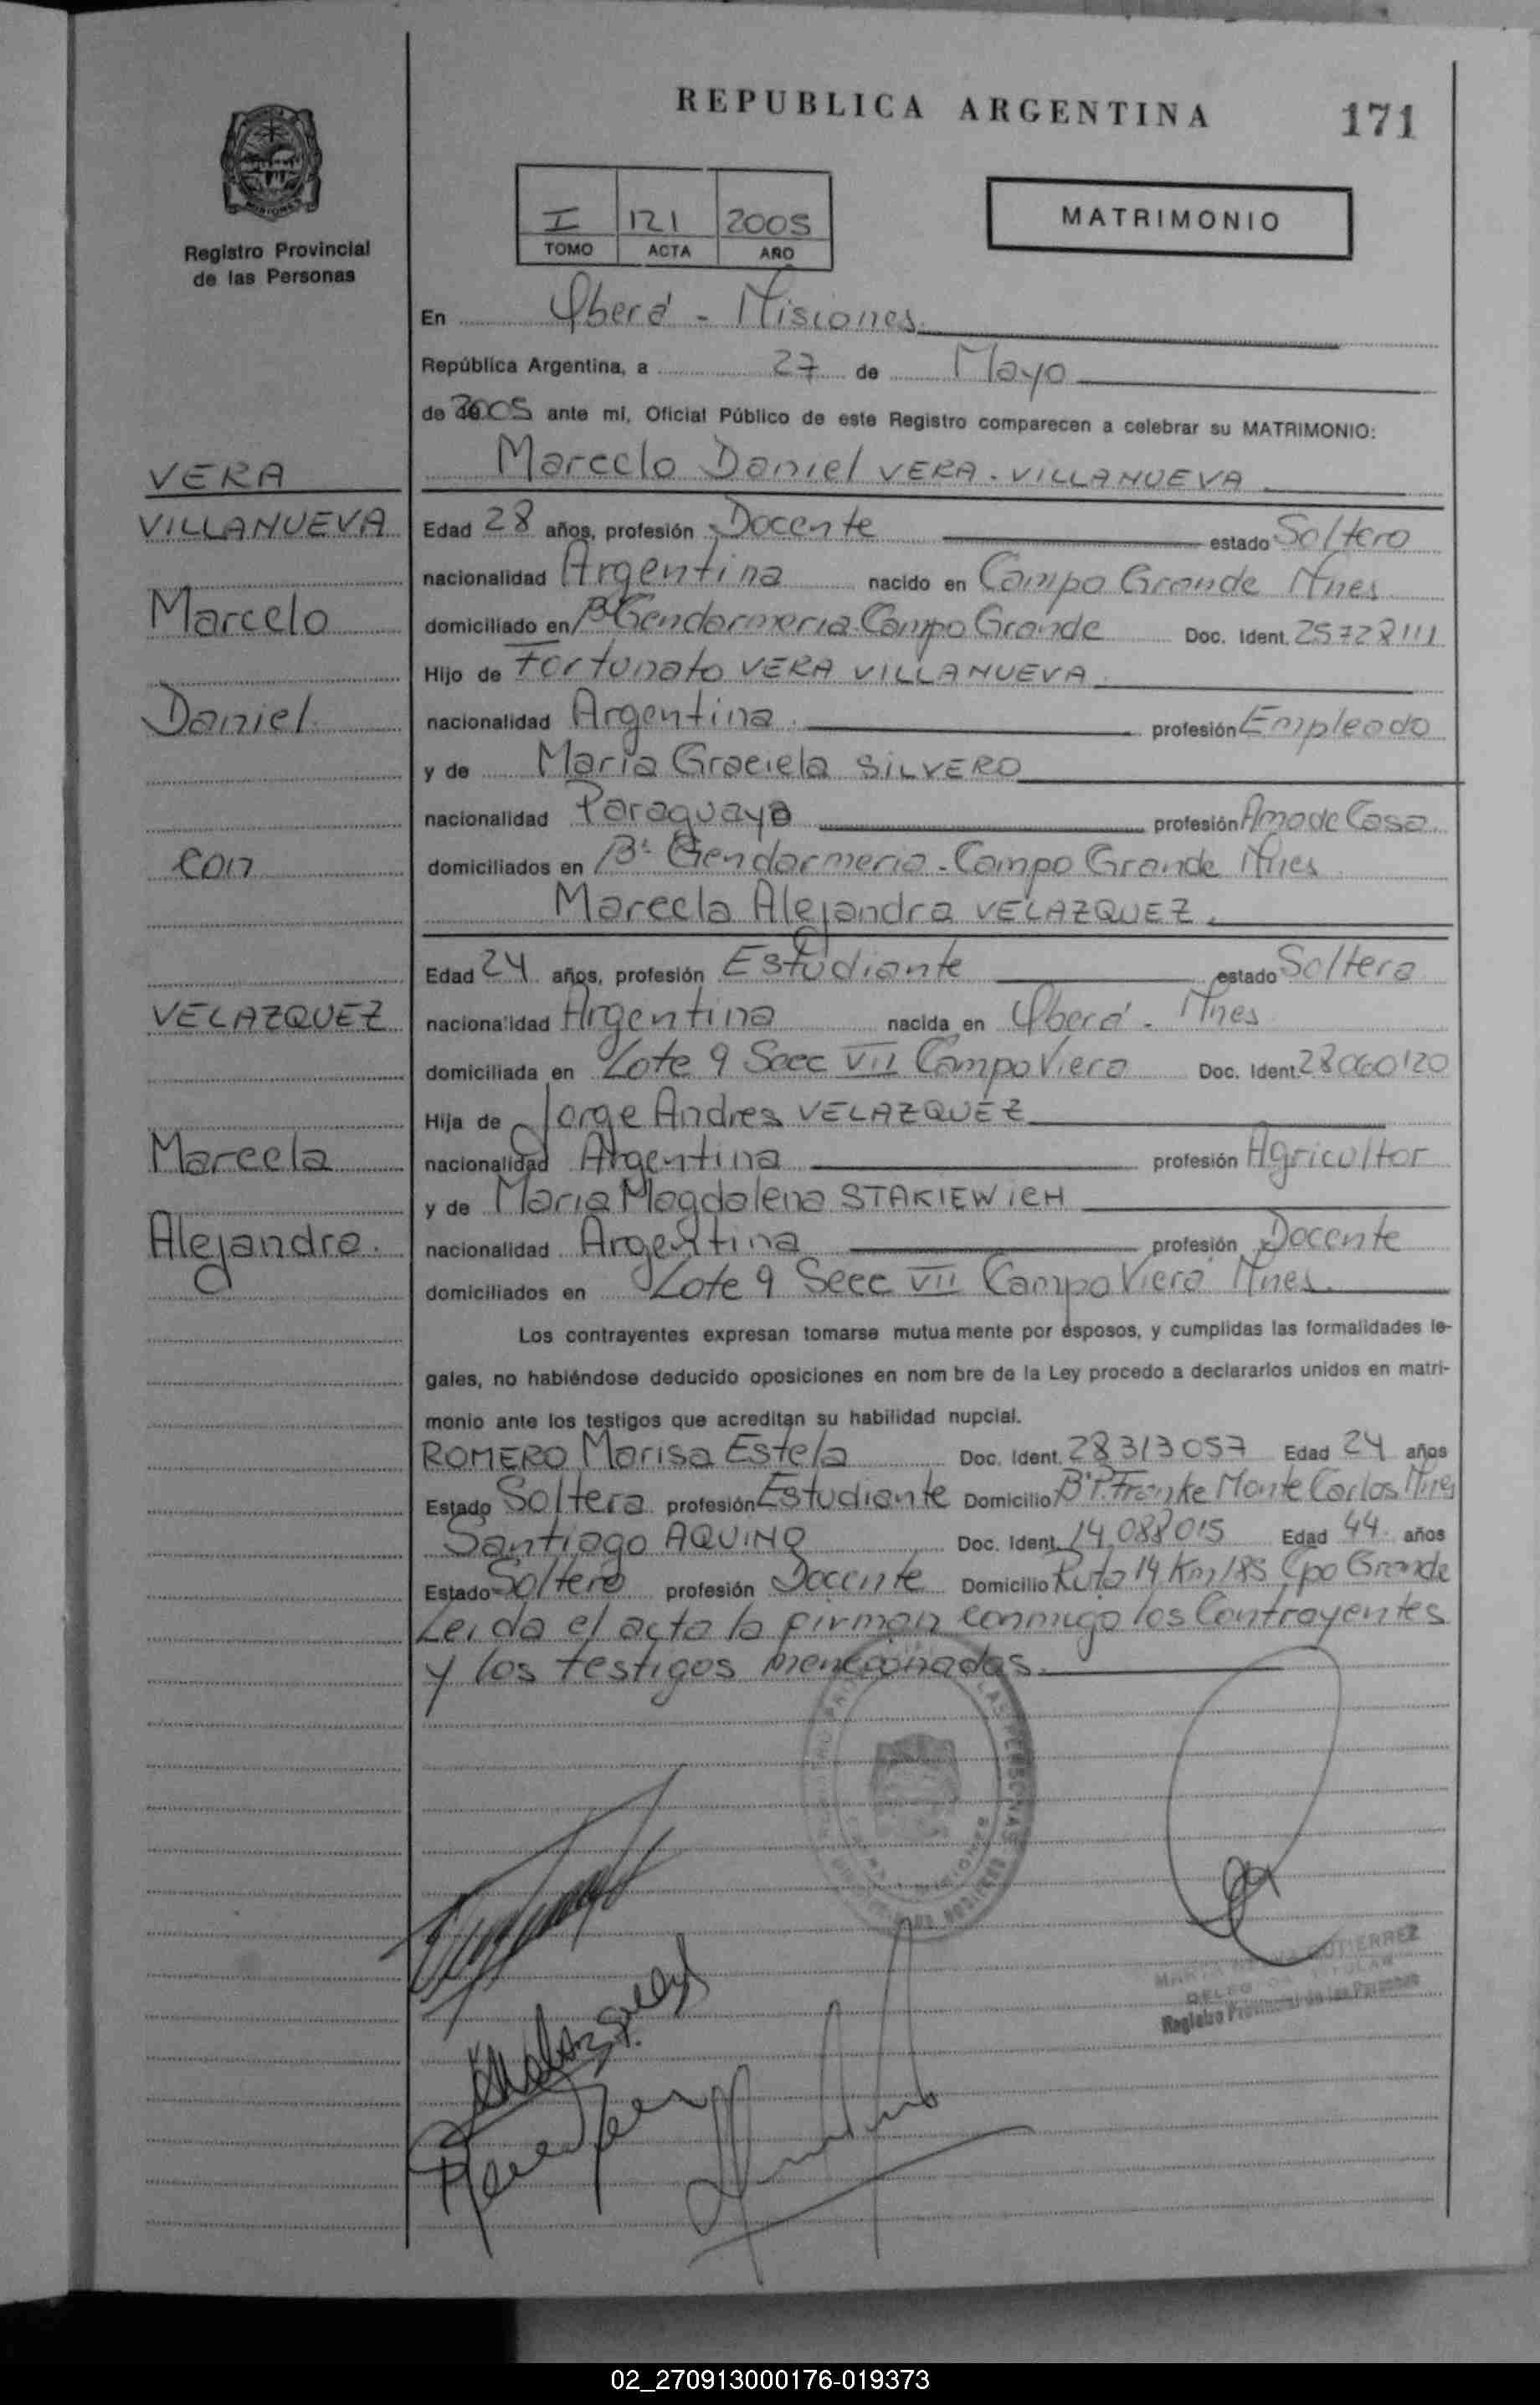 REPUBLICA ARGENTINA
171
MISIONES
Registro Provincial
de las Personas
I 121 2005
TOMO ACTA AÑO
MATRIMONIO
En Oberá - Misiones.
República Argentina, a 27 de Mayo
de 2005 ante mi, Oficial Público de este Registro comparecen a celebrar su MATRIMONIO:
Marcelo Daniel VERA - VILLANUEVA
VERA
VILLANUEVA
Marcelo
Daniel
con
VELAZQUEZ
Marcela
Alejandra.
Edad 28 años, profesión Docente estado Soltero
nacionalidad Argentina nacido en Campo Grande Mnes
domiciliado en Bº Gendarmeria Campo Grande Doc. Ident. 25728111
Hijo de Fortunato VERA VILLANUEVA
nacionalidad Argentina. profesión Empleado
y de Maria Graciela SILVERO
nacionalidad Paraguaya profesión Ama de Casa.
domiciliados en Bº Gendarmeria - Campo Grande Mnes
Marcela Alejandra VELAZQUEZ.
Edad 24 años, profesión Estudiante estado Soltera
nacionalidad Argentina nacida en Oberá - Mnes
domiciliada en Lote 9 Secc VII Campo Viera Doc. Ident. 28060120
Hija de Jorge Andres VELAZQUEZ
nacionalidad Argentina profesión Agricultor
y de Maria Magdalena STAKIEWICH
nacionalidad Argentina profesión Docente
domiciliados en Lote 9 Secc VII Campo Viera Mnes.
Los contrayentes expresan tomarse mutua mente por esposos, y cumplidas las formalidades le-
gales, no habiéndose deducido oposiciones en nom bre de la Ley procedo a declararlos unidos en matri-
monio ante los testigos que acreditan su habilidad nupcial.
ROMERO Marisa Estela Doc. Ident. 28313057 Edad 24 años
Estado Soltera profesión Estudiante Domicilio Bº P. Franke Monte Carlos Mnes
Santiago AQUINO Doc. Ident. 14.088015 Edad 44 años
Estado Soltero profesión Docente Domicilio Ruta 14 Km 185 Cpo Grande
Leida el acta la firman conmigo los Contrayentes
y los testigos mencionados.
GUTIERREZ
TITULAR
Registro Provincial de las Personas
02_270913000176-019373